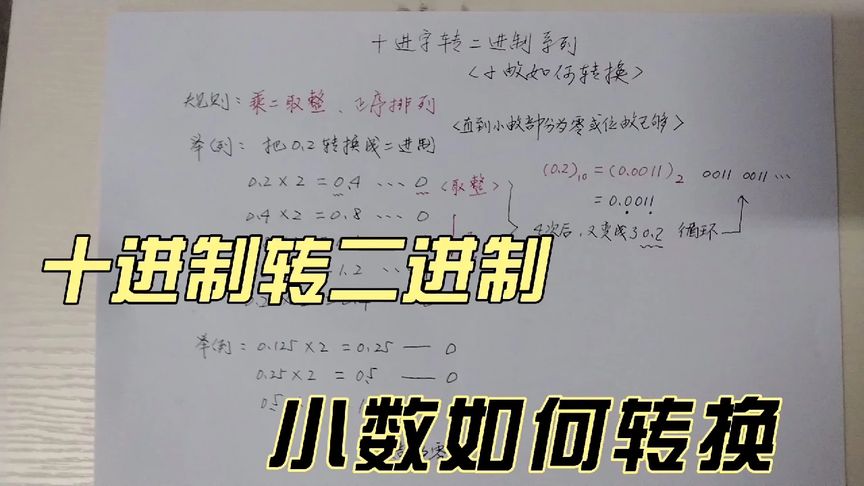 十进字转二进制系列
<小数如何转换>
规则：乘二取整、正序排列
<直到小数部分为零或位数已够>
举例：把0.2转换成二进制
0.2×2=0.4 … 0 <取整>
0.4×2=0.8 … 0
1.2 …
(0.2)10=(0.0011)2 0011 0011 …
=0.0011
4次后，又变成了0.2 循环
十进制转二进制
举例：0.125×2=0.25 — 0
0.25×2=0.5 — 0
0.5
小数如何转换